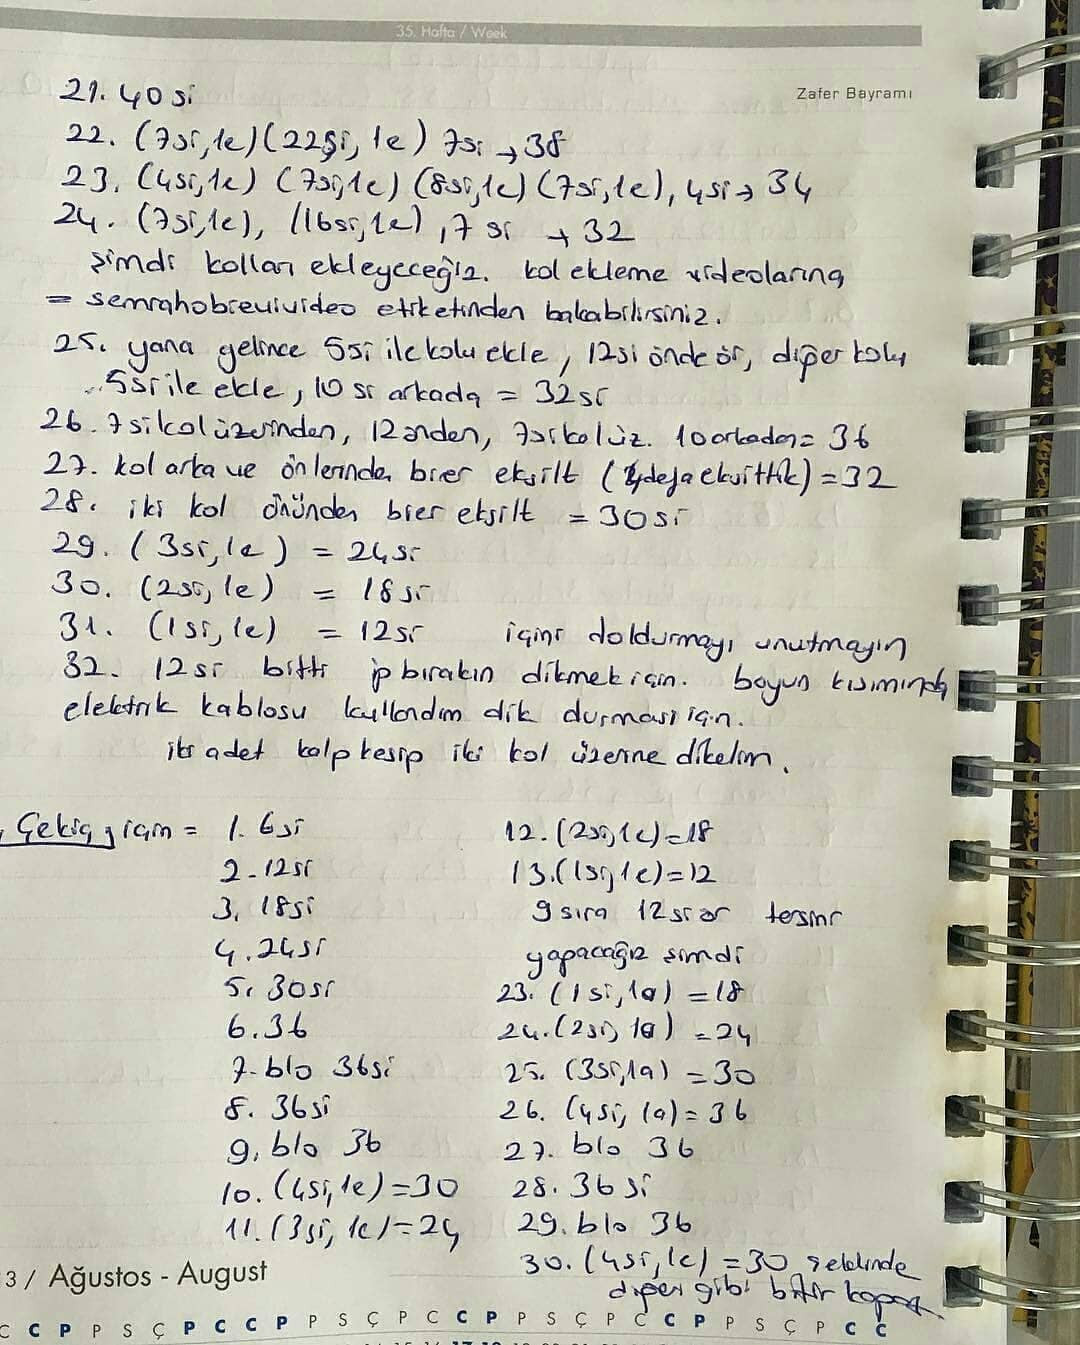 35. Hafta / Week
Zafer Bayramı
21. 40 si
22. (7si, 1e) (22si, 1e) 7si → 38
23. (4si, 1e) (7si, 1e) (8si, 1e) (7si, 1e), 4si → 34
24. (7si, 1e), (16si, 1e), 7 si → 32
şimdi kolları ekleyeceğiz. kol ekleme videolarına
= semrahobievivideo etiketinden bakabilirsiniz.
25. yana gelince 5si ile kolu ekle, 12si önde ör, diğer kolu
5si ile ekle, 10 si arkada = 32si
26. 7si kol üzerinden, 12 önden, 7si kol üz. 10 arkadan = 36
27. kol arka ve önlerinden birer eksilt (4 defa eksilttik) = 32
28. iki kol önünden birer eksilt = 30si
29. (3si, 1e) = 24si
30. (2si, 1e) = 18si
31. (1si, 1e) = 12si içini doldurmayı unutmayın
32. 12si bitti ip bırakın dikmek için. boyun kısımında
elektrik kablosu kullandım dik durması için.
iki adet kalp kesip iki kol üzerine dikelim.
Çekiç için =
1. 6si
2. 12si
3. 18si
4. 24si
5. 30si
6. 36
7. blo 36si
8. 36si
9. blo 36
10. (4si, 1e) = 30
11. (3si, 1e) = 24
12. (2si, 1e) = 18
13. (1si, 1e) = 12
9 sıra 12si ör tersini
yapacağız şimdi
23. (1si, 1a) = 18
24. (2si, 1a) = 24
25. (3si, 1a) = 30
26. (4si, 1a) = 36
27. blo 36
28. 36 si
29. blo 36
30. (4si, 1e) = 30 şeklinde
diğeri gibi bitir kapat
3 / Ağustos - August
C C P P S Ç P C C P P S Ç P C C P P S Ç P C C P P S Ç P C C